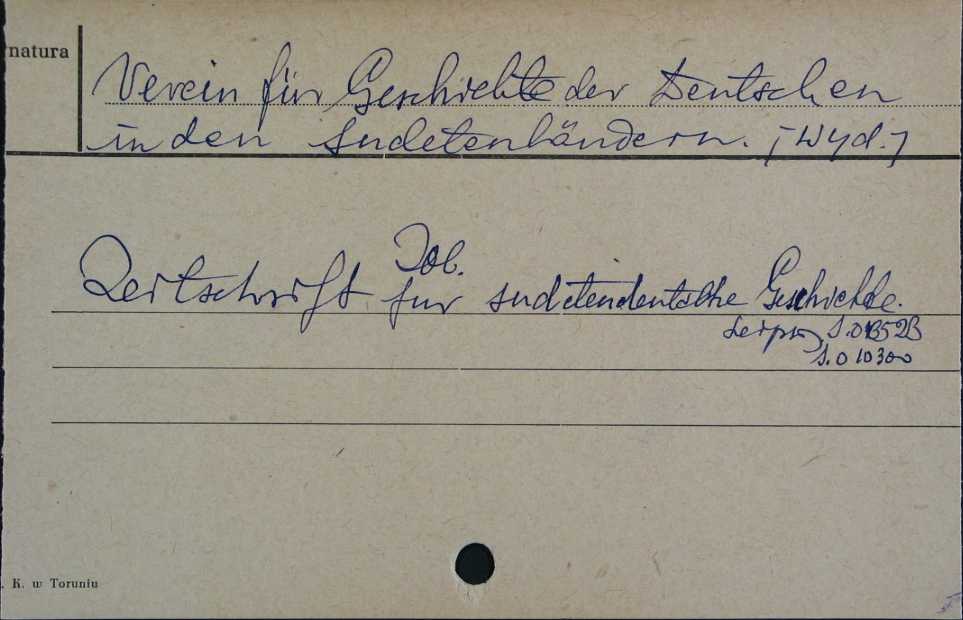 natura
Verein für Geschichte der Deutschen
in den Sudetenländern. [Wyd.]
Zob.
Zeitschrift für sudetendeutsche Geschichte.
Leipzig S.01352B
S.010300
. K. w Toruniu